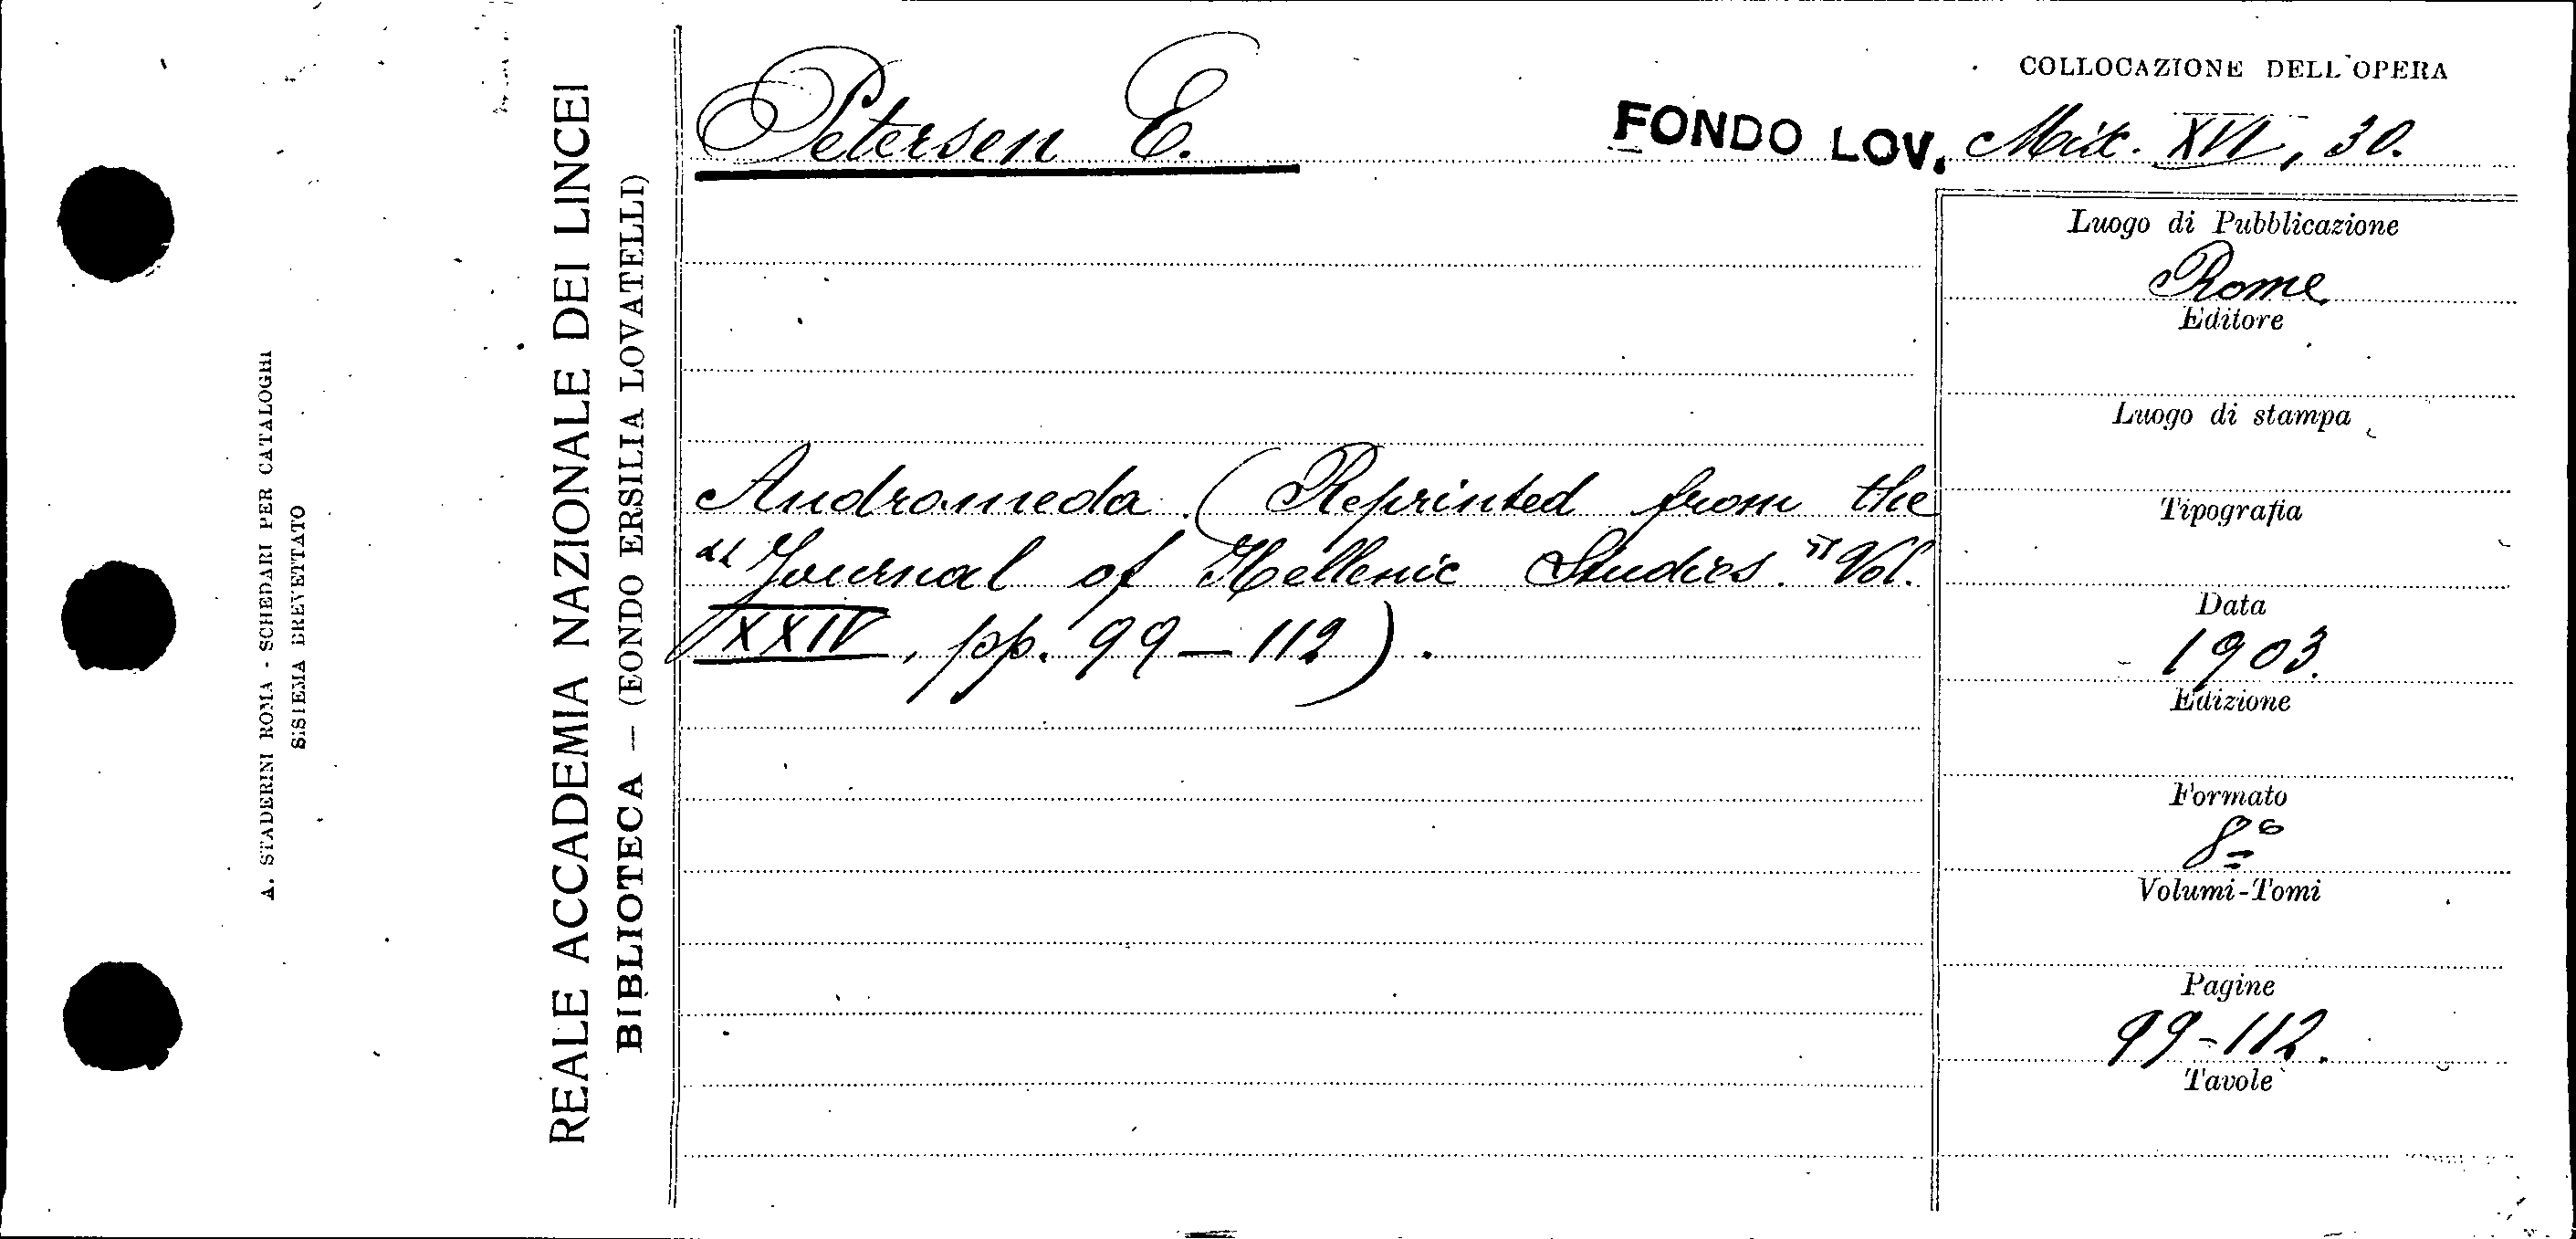 A. STADERINI ROMA - SCHEDARI PER CATALOGHI
SISTEMA BREVETTATO
REALE ACCADEMIA NAZIONALE DEI LINCEI
BIBLIOTECA — (FONDO ERSILIA LOVATELLI)
COLLOCAZIONE DELL'OPERA
Petersen E.
FONDO LOV. Misc. XVI, 30.
Andromeda. (Reprinted from the
"Journal of Hellenic Studies." Vol.
XXIV, pp. 99-112).
Luogo di Pubblicazione
Rome
Editore
Luogo di stampa
Tipografia
Data
1903.
Edizione
Formato
8º
Volumi-Tomi
Pagine
99-112.
Tavole